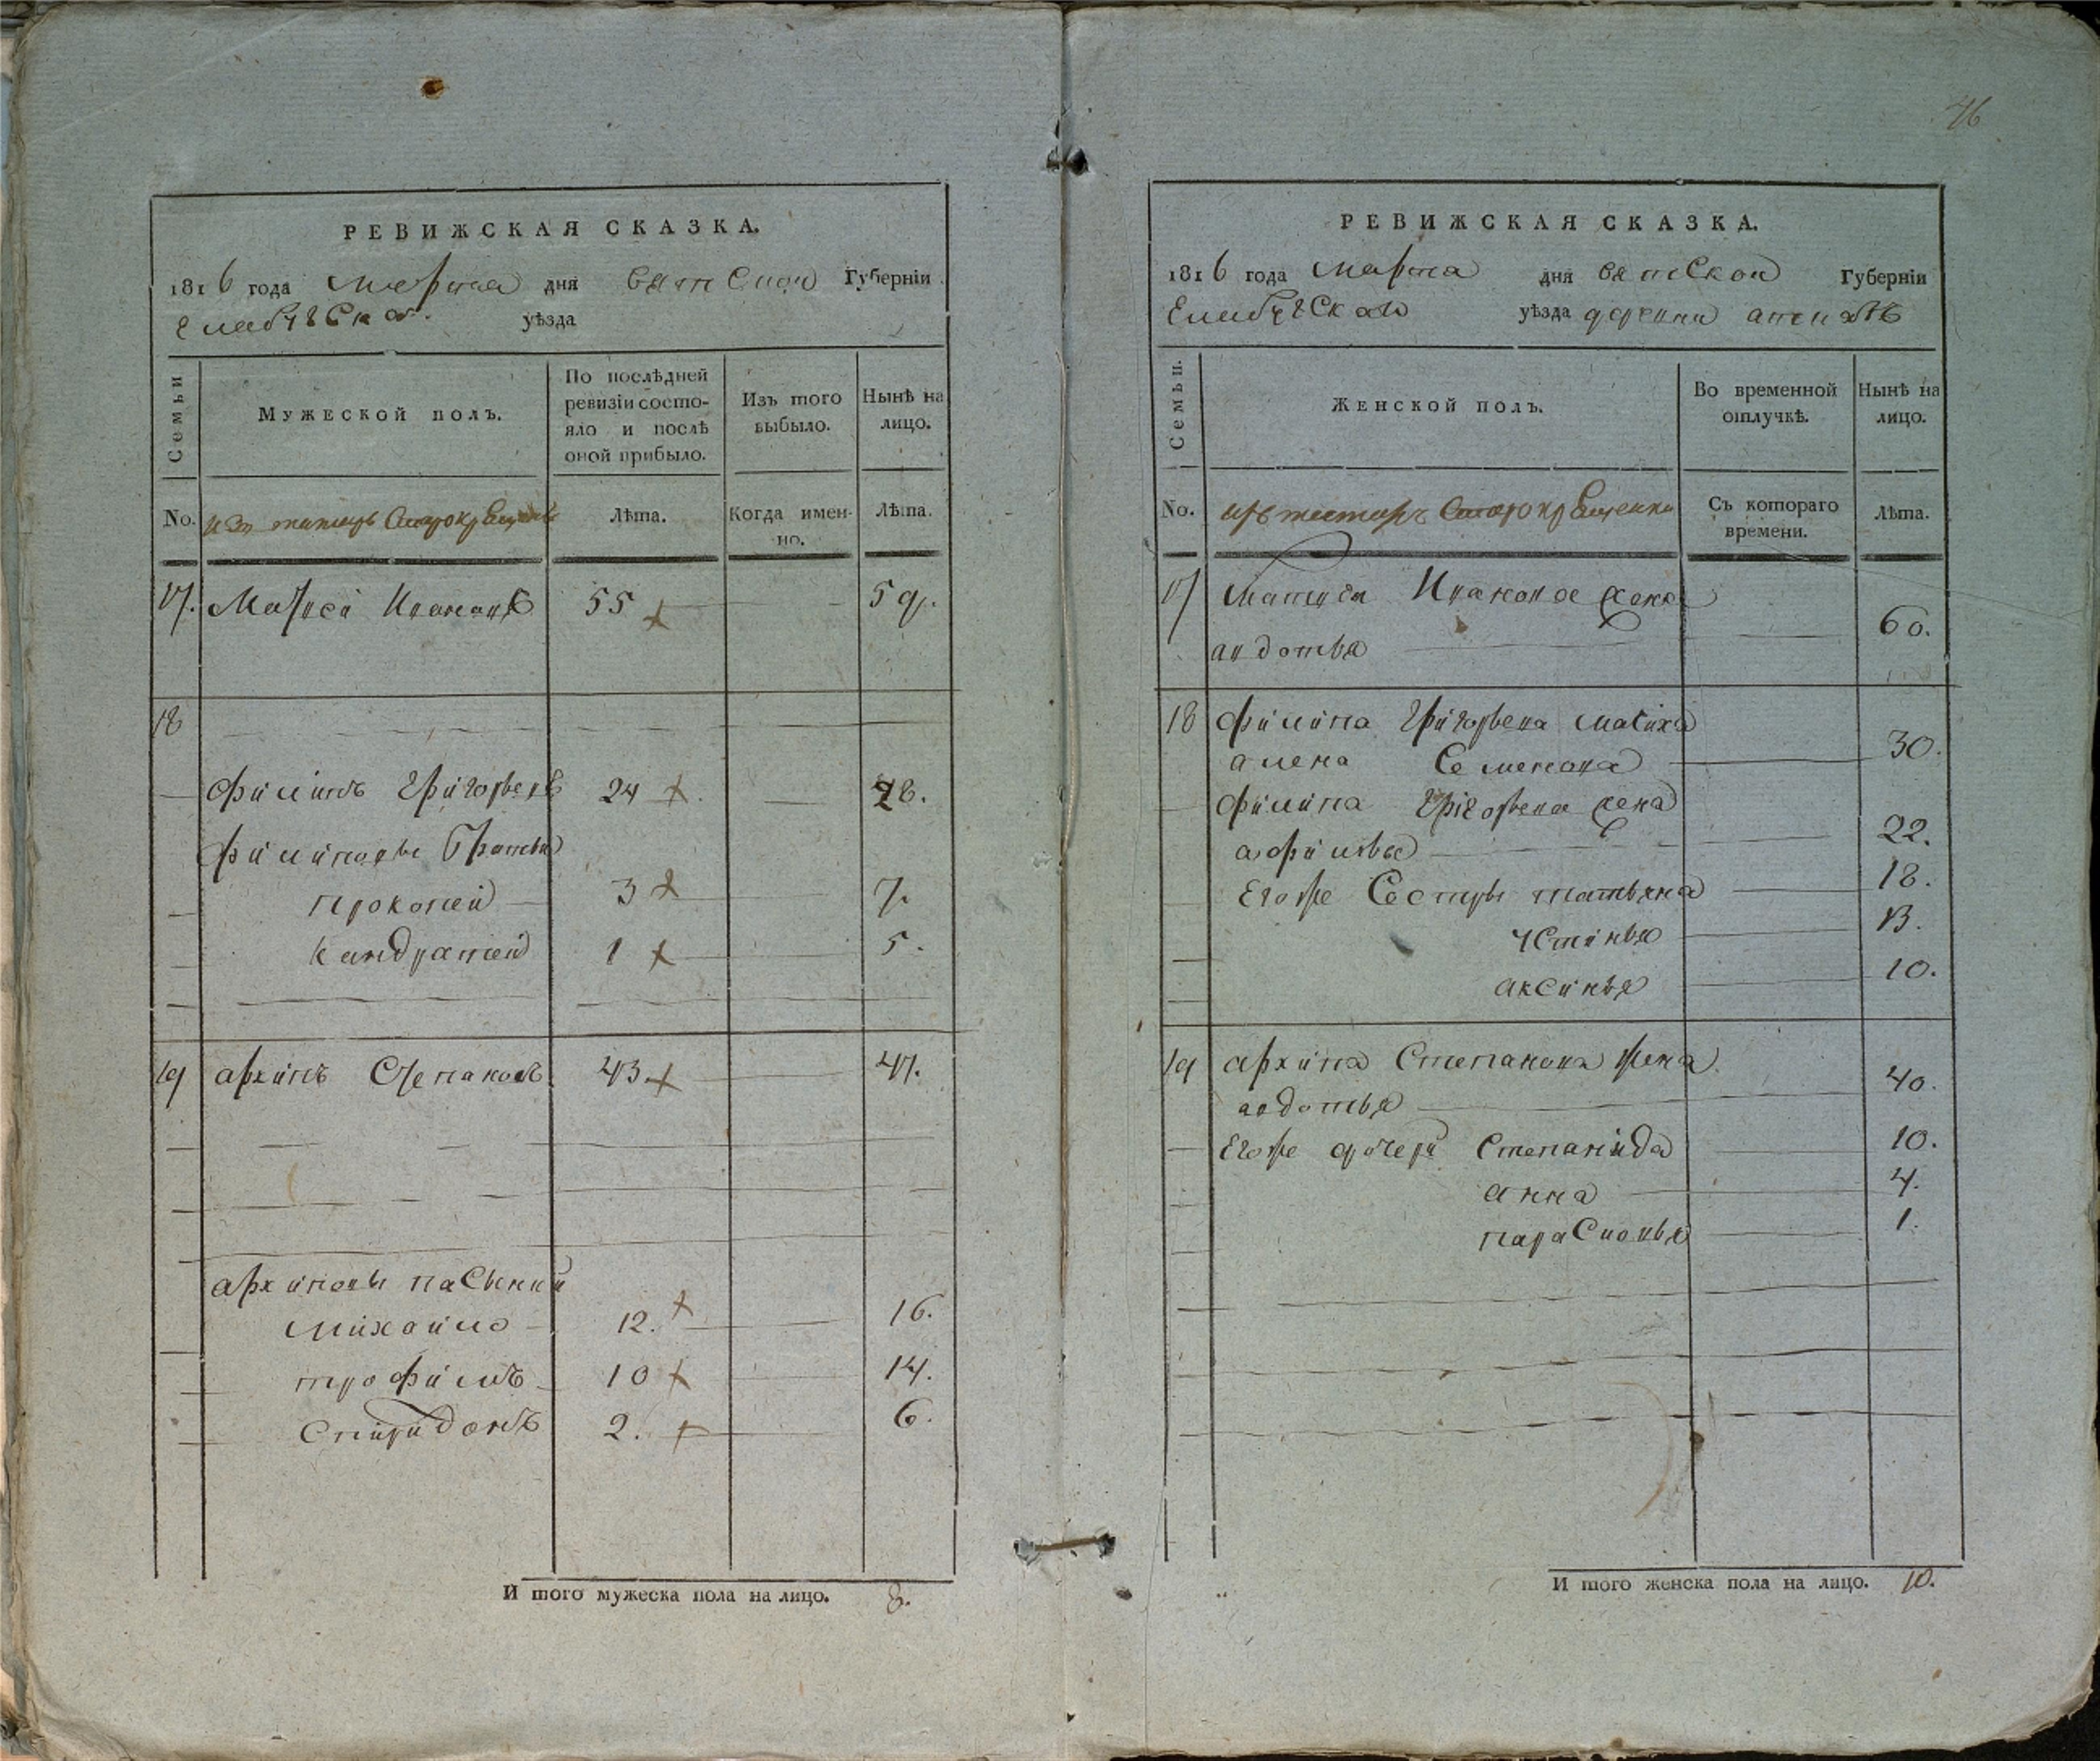 76
РЕВИЖСКАЯ СКАЗКА.
1816 года Марта дня вятской Губерніи
Елабужской уѣзда
Семьи
Мужеской полъ.
По послѣдней ревизіи состояло и послѣ оной прибыло.
Изъ того выбыло.
Нынѣ на лицо.
No. изъ татаръ Старокрещенъ
Лѣта.
Когда именно.
Лѣта.
17. Матвей Ивановъ 55 59.
18
Филипъ Григорьевъ 24 28.
Филиповы Братья
Прокопей 3 7.
Кандратей 1 5.
19 архипъ Степановъ 43. 47.
архиповы пасынки
Михайло 12. 16.
трофимъ 10 14.
Спиридонъ 2. 6.
И того мужеска пола на лицо. 8.
РЕВИЖСКАЯ СКАЗКА.
1816 года Марта дня вятской Губерніи
Елабужской уѣзда деревни
Семьи.
Женской полъ.
Во временной отлучкѣ.
Нынѣ на лицо.
No. изъ татаръ Старокрещенки
Съ котораго времени.
Лѣта.
17 Матвея Иванова жена
авдотья 60.
18 Филипа Григорьева мачиха
алена Семенова 30.
Филипа Григорьева жена
афимья 22.
Егоже Сестры татьяна 18.
устинья 13.
аксинья 10.
19 архипа Степанова жена
авдотья 40.
Егоже дочери Степанида 10.
анна 4.
парасковья 1.
И того женска пола на лицо. 10.